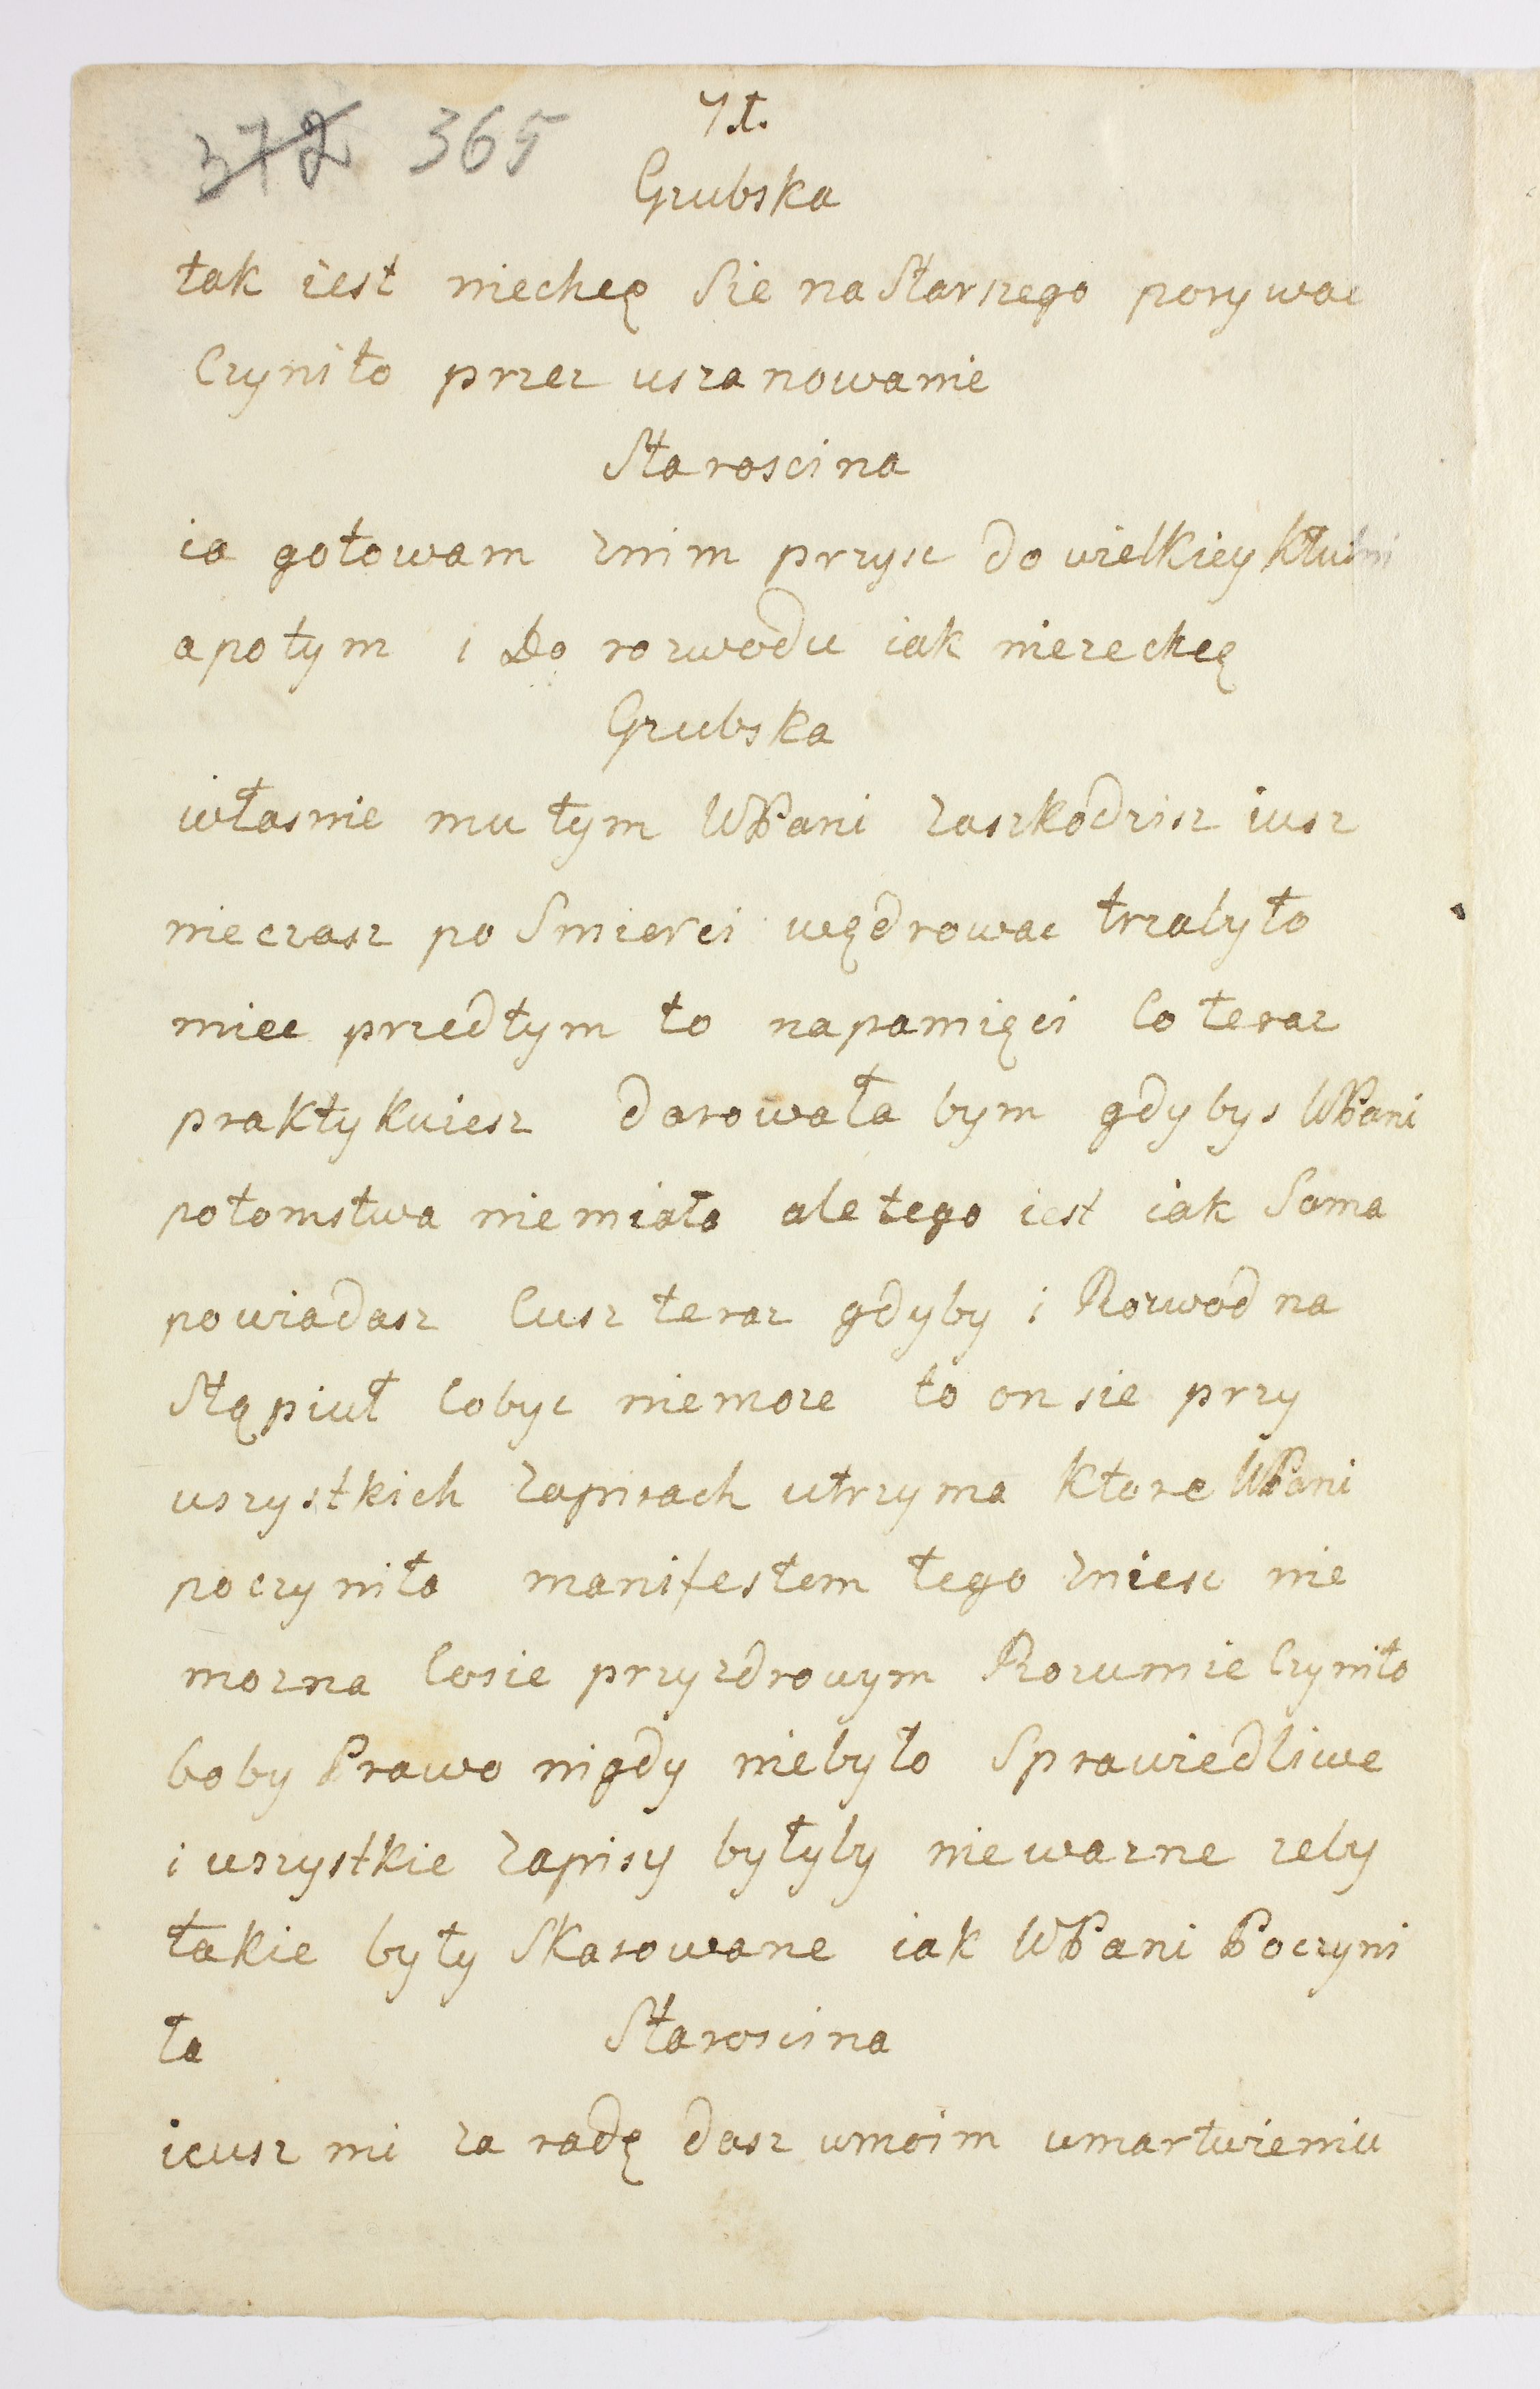 372 365
7.t.
Grubska
tak iest niechcę Sie na Starszego porywac
Czyniło przez uszanowanie
Staroscina
ia gotowam znim przysc do wielkiey kłutni
a potym i Do rozwodu iak niezechcę
Grubska
własnie mu tym WPani zaszkodzisz iusz
nieczasz po Smierci wędrowac trzabyło
miec przedtym to napamięci Co teraz
praktykuiesz darowała bym gdybys WPani
potomstwa niemiała ale tego iest iak Sama
powiadasz Cusz teraz gdyby i Rozwod na
Stąpiuł Cobyc niemoze to on sie przy
uszystkich zapisach utrzyma Ktore WPani
poczyniła manifestem tego zniesc nie
mozna Cosie przyzdrowym Rozumie Czyniło
boby Prawo nigdy niebyło Sprawiedliwe
i uszystkie zapisy byłyby niewazne zeby
takie były Skasowane iak WPani Poczyni
ła Staroscina
icusz mi za radę dasz umoim umartwieniu